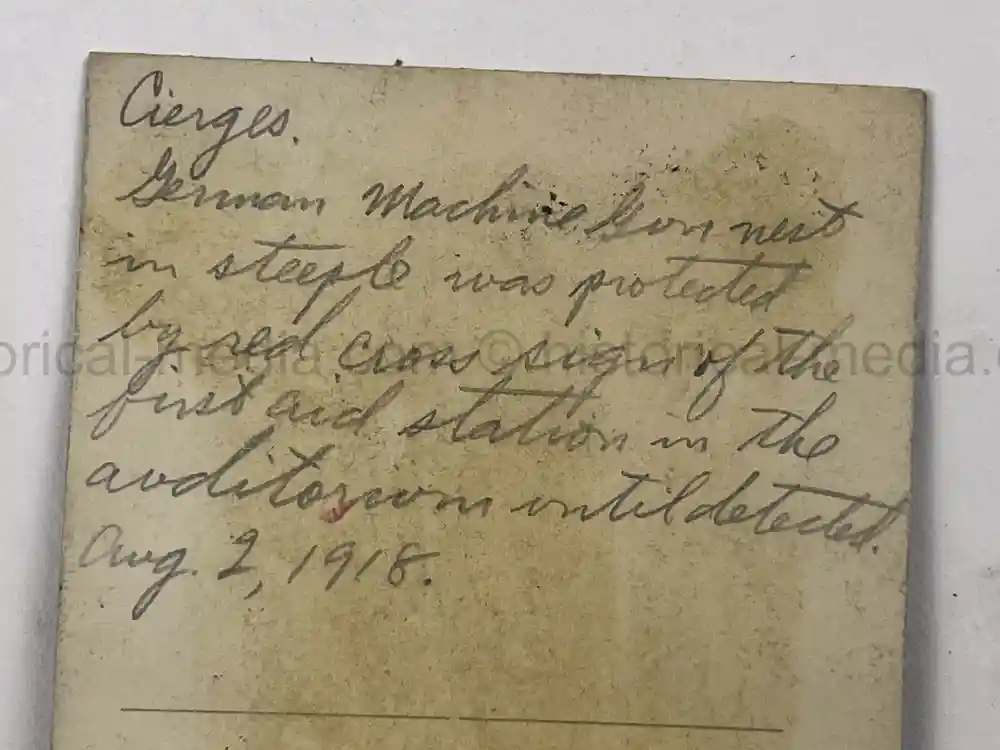 Cierges.
German Machine Gun nest
in steeple was protected
by red cross sign of the
first aid station in the
auditorium until detected.
Aug. 2, 1918.
orical-media.com ©historical-media.c